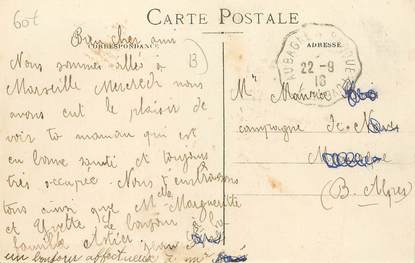 60t
CARTE POSTALE
Bien cher ami
CORRESPONDANCE
ADRESSE
B
Nous sommes allés à
Marseille Mercredi nous
avons eut le plaisir de
voir ta maman qui est
en bonne santé et toujours
très occupée. Nous t'embrassons
tous ainsi que Melle Marguerite
et Yvette de bonjour
famille
un bonjour affectueux à mr
AUBAGNE
22-9
16
Mr Maurice
campagne de
(B. Alpes)